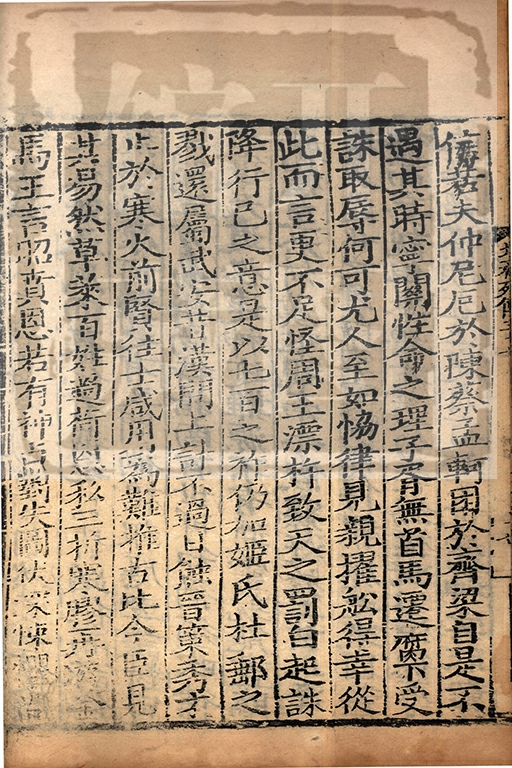 傍若夫仲尼厄於陳蔡孟軻困於齊梁自是不
遇其時寧關性命之理子胥無首馬遷腐刑受
誅取辱何可尤人至如協律見親擢舩得幸從
此而言更不足怪周王漂杵致天之罰白起誅
降行己之意是以七百之祚仍加姬氏杜郵之
戮還屬武安昔漢問上計不過日蝕晉策秀才
止於寒火前賢往士咸用為難推古比今臣見
其易然草萊百姓過荷恩私三折寒膠再遊金
馬王言昭賁恩若有神占對失圖伏深悚